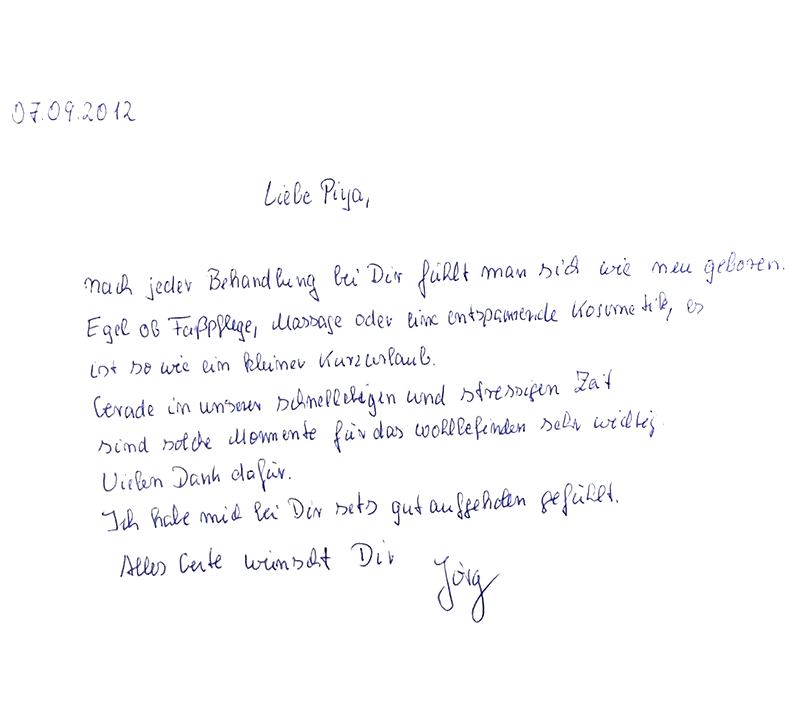 07.09.2012
Liebe Piya,
nach jeder Behandlung bei Dir fühlt man sich wie neu geboren.
Egal ob Fußpflege, Massage oder eine entspannende Kosmetik, es
ist so wie ein kleiner Kurzurlaub.
Gerade in unserer schnellebigen und stressigen Zeit
sind solche Momente für das Wohlbefinden sehr wichtig.
Vielen Dank dafür.
Ich habe mich bei Dir sets gut aufgehoben gefühlt.
Alles Gute wünscht Dir Jörg